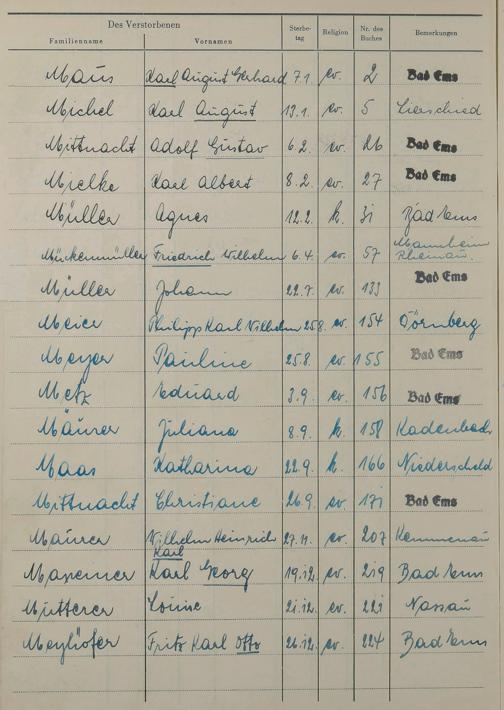 Des Verstorbenen
Familienname Vornamen Sterbe-tag Religion Nr. des Buches Bemerkungen
Maus Karl August Gerhard 7.1. ev. 2 Bad Ems
Michel Karl August 13.1. ev. 5 Lierschied
Mittnacht Adolf Gustav 6.2. ev. 26 Bad Ems
Mielke Karl Albert 8.2. ev. 27 Bad Ems
Müller Agnes 12.2. k. 31 Bad Ems
Mückenmüller Friedrich Wilhelm 6.4. ev. 57 Mannheim Rheinau
Müller Johann 22.7. ev. 133 Bad Ems
Meier Philipp Karl Wilhelm 25.8. ev. 154 Dörnberg
Meyer Pauline 25.8. ev. 155 Bad Ems
Metz Eduard 3.9. ev. 156 Bad Ems
Mäurer Juliana 8.9. k. 158 Kadenbach
Maas Katharina 22.9. k. 166 Niederscheld
Mittnacht Christiane 26.9. ev. 171 Bad Ems
Maurer Wilhelm Heinrich Karl 27.11. ev. 207 Kemmenau
Karl Georg 19.12. ev. 219 Bad Ems
Mutterer Louise 21.12. ev. 221 Nassau
Meyhöfer Fritz Karl Otto 26.12. ev. 224 Bad Ems